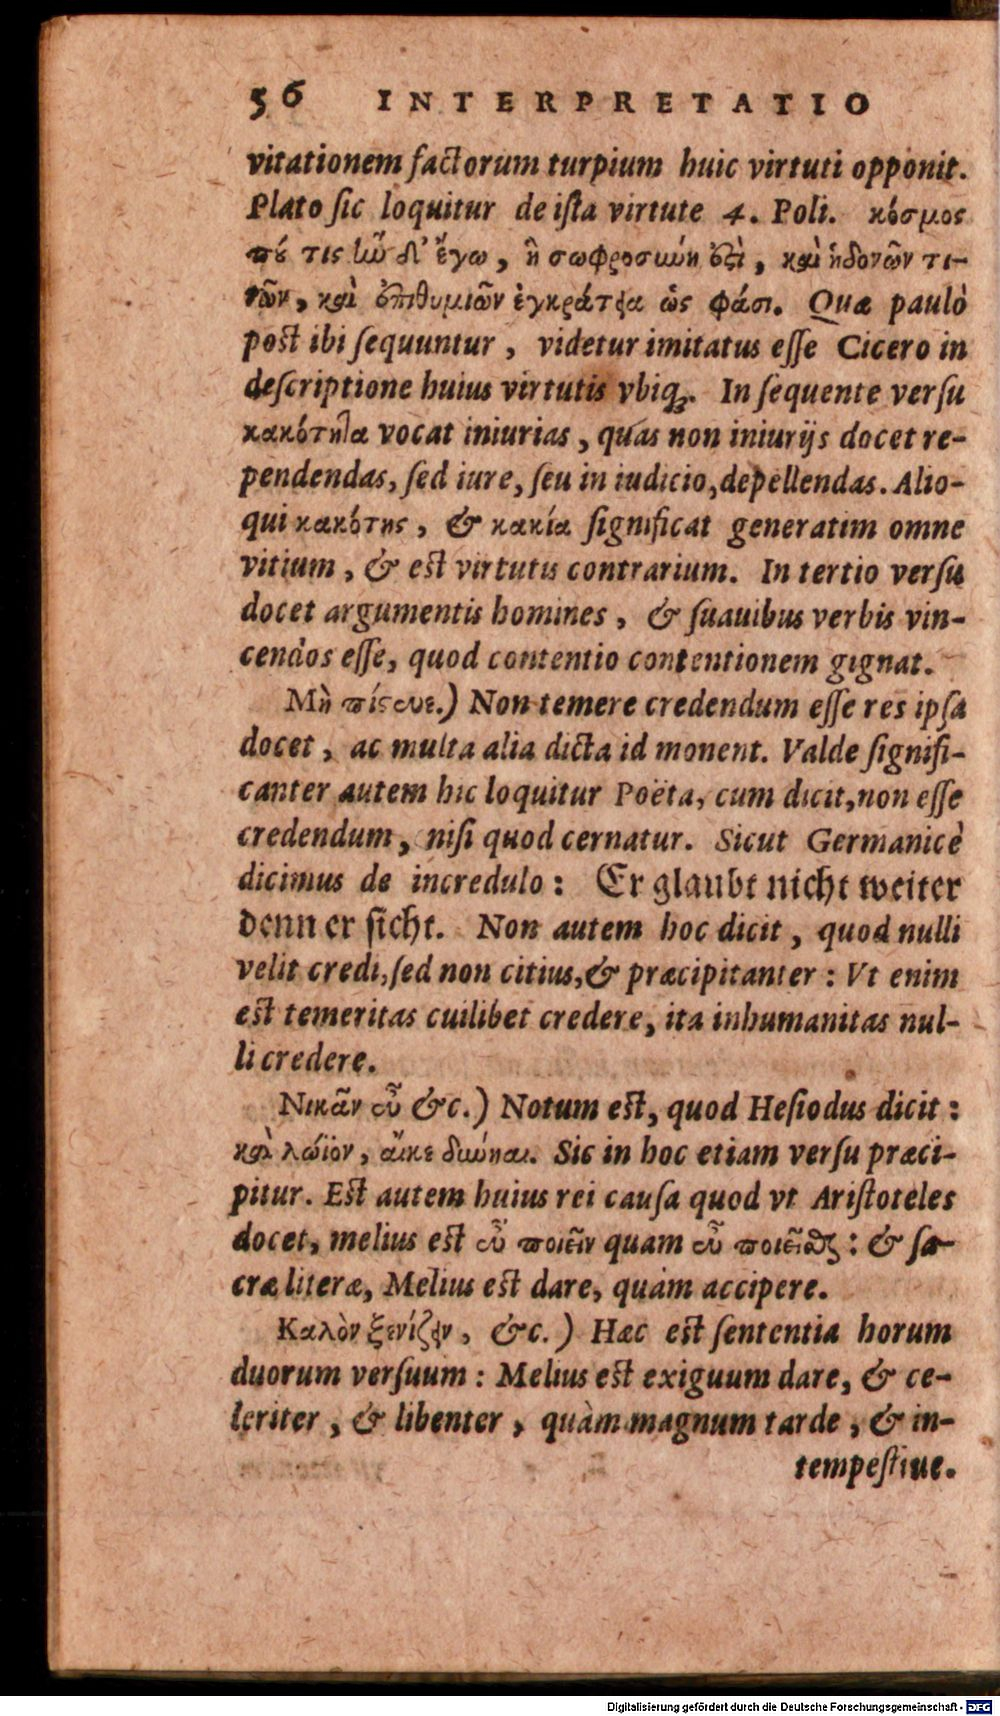 56 INTERPRETATIO
vitationem factorum turpium huic virtuti opponit.
Plato ſic loquitur de iſta virtute 4. Poli. κόσμος
πού τις ἦν δ' ἔγω, ἡ σωφροσύνη ἐςὶ, καὶ ἡδονῶν τι-
νῶν, καὶ ἐπιθυμιῶν ἐγκράτεια ὡς φάσι. Quæ paulò
poſt ibi ſequuntur, videtur imitatus eſſe Cicero in
deſcriptione huius virtutis vbiq;. In ſequente verſu
κακότητα vocat iniurias, quas non iniurijs docet re-
pendendas, ſed iure, ſeu in iudicio, depellendas. Alio-
qui κακότης, & κακία ſignificat generatim omne
vitium, & eſt virtutis contrarium. In tertio verſu
docet argumentis homines, & ſuauibus verbis vin-
cendos eſſe, quod contentio contentionem gignat.
Μὴ πίςευε.) Non temere credendum eſſe res ipſa
docet, ac multa alia dicta id monent. Valde ſignifi-
canter autem hic loquitur Poëta, cum dicit, non eſſe
credendum, niſi quod cernatur. Sicut Germanicè
dicimus de incredulo: Er glaubt nicht weiter
denn er ſicht. Non autem hoc dicit, quod nulli
velit credi, ſed non citius, & præcipitanter: Vt enim
eſt temeritas cuilibet credere, ita inhumanitas nul-
li credere.
Νικᾶν εὖ &c.) Notum eſt, quod Heſiodus dicit:
καὶ λώϊον, αἴκε δύνηαι. Sic in hoc etiam verſu præci-
pitur. Eſt autem huius rei cauſa quod vt Ariſtoteles
docet, melius eſt εὖ ποιεῖν quam εὖ ποιεῖσθαι: & ſa-
cræ literæ, Melius eſt dare, quàm accipere.
Καλὸν ξενίζειν, &c.) Hæc eſt ſententia horum
duorum verſuum: Melius eſt exiguum dare, & ce-
leriter, & libenter, quàm magnum tarde, & in-
tempeſtiue.
Digitalisierung gefördert durch die Deutsche Forschungsgemeinschaft - DFG